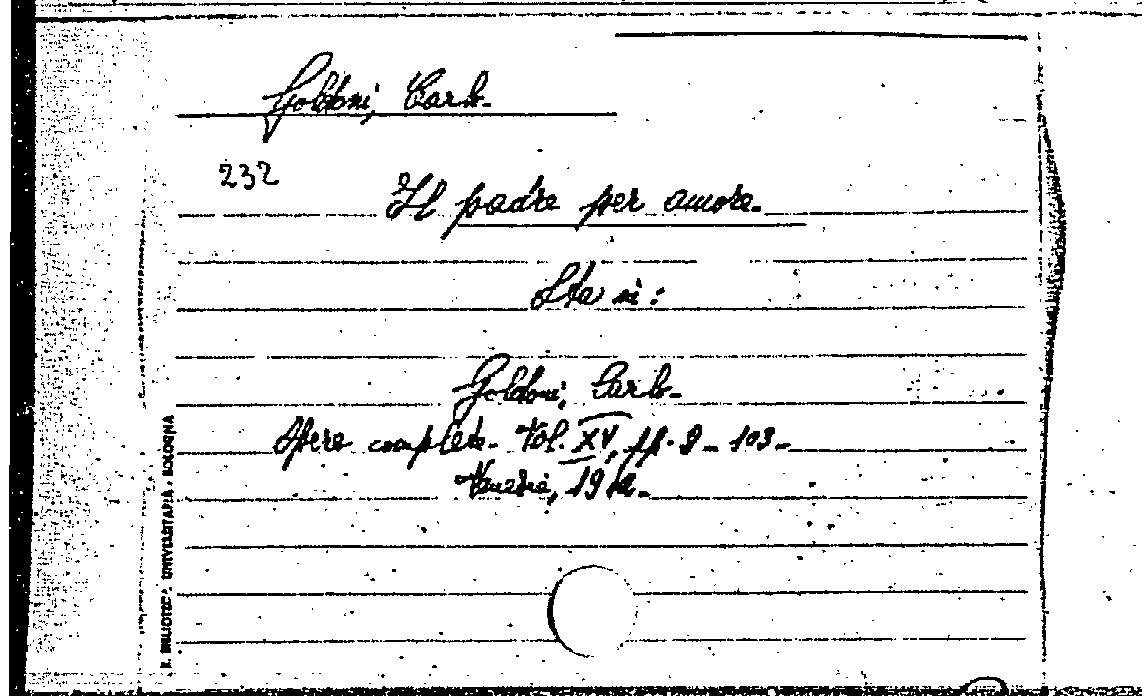 Goldoni, Carlo.
232
Il padre per amore.
Sta in:
Goldoni, Carlo.
Opere complete. Vol. XV, pp. 9 - 103.
Venezia, 1912.
R. BIBLIOTECA UNIVERSITARIA - BOLOGNA